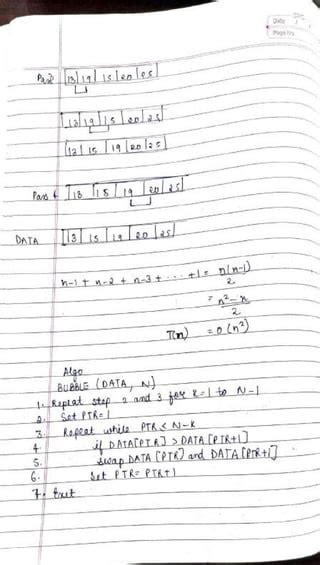 Date
Page No
Pass 3 |13|19|15|20|25|
|13|19|15|20|25|
|13|15|19|20|25|
Pass 4 |13|15|19|20|25|
DATA |13|15|19|20|25|
n-1 + n-2 + n-3 + ... +1 = n(n-1)/2
= n²-n/2
T(n) = O(n²)
Algo
BUBBLE (DATA, N)
1. Repeat step 2 and 3 for k=1 to N-1
2. Set PTR=1
3. Repeat while PTR ≤ N-k
4. if DATA[PTR] > DATA [PTR+1]
5. swap DATA [PTR] and DATA [PTR+1]
6. Set PTR= PTR+1
7. Exit